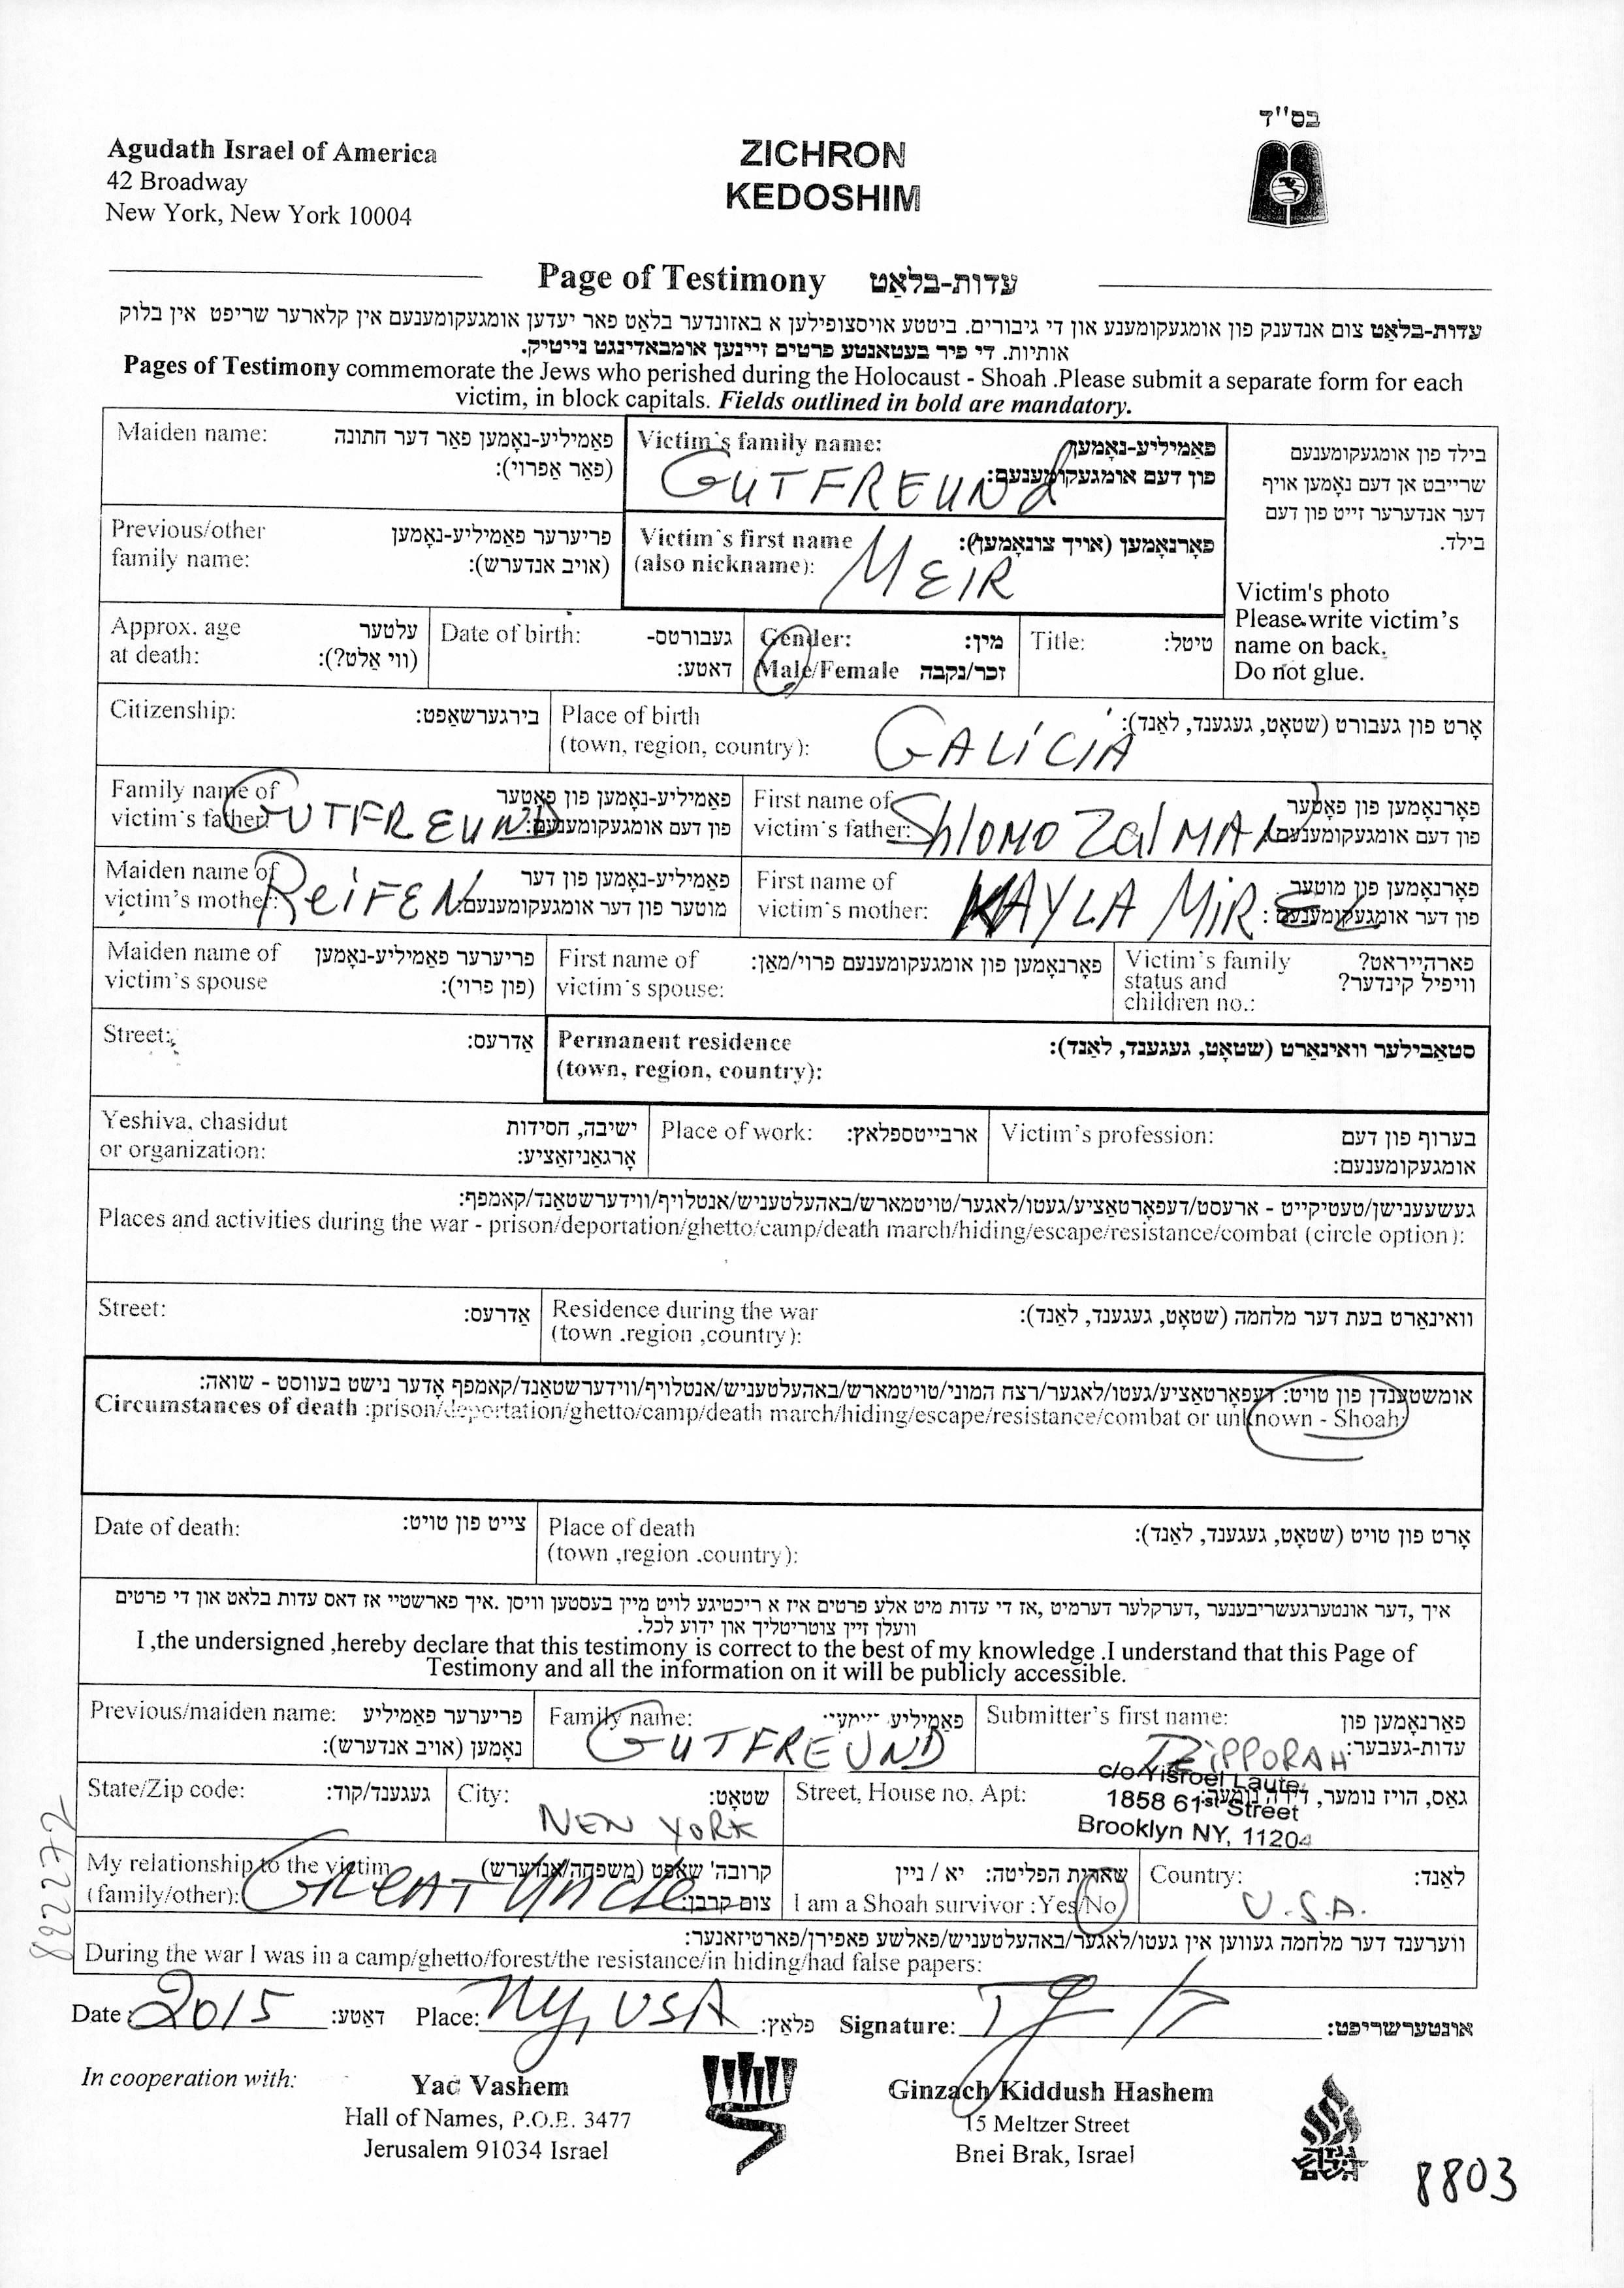 בס"ד
Agudath Israel of America
42 Broadway
New York, New York 10004
ZICHRON
KEDOSHIM
Page of Testimony עדות-בלאַט
עדות-בלאַט צום אנדענק פון אומגעקומענע און די גיבורים. ביטטע אויסצופילען א באזונדער בלאַט פאר יעדען אומגעקומענעם אין קלארער שריפט אין בלוק
אותיות. די פיר בעטאנטע פרטים זיינען אומבאדינגט נייטיק.
Pages of Testimony commemorate the Jews who perished during the Holocaust - Shoah .Please submit a separate form for each
victim, in block capitals. Fields outlined in bold are mandatory.
Maiden name: פאַמיליע-נאָמען פאַר דער חתונה
(פאַר אַפרוי):
Victim's family name: פאַמיליע-נאָמען
פון דעם אומגעקומענעם:
GUTFREUND
בילד פון אומגעקומענעם
שרייבט אן דעם נאָמען אויף
דער אנדערער זייט פון דעם
בילד.
Victim's photo
Please write victim's
name on back.
Do not glue.
Previous/other פריערער פאַמיליע-נאָמען
family name: (אויב אנדערש):
Victim's first name פאָרנאָמען (אויך צונאָמען):
(also nickname):
MEIR
Approx. age עלטער
at death: (ווי אַלט?):
Date of birth: געבורטס-
דאטע:
Gender: מין:
Male/Female זכר/נקבה
Title: טיטל:
Citizenship: בירגערשאַפט:
Place of birth אָרט פון געבורט (שטאָט, געגענד, לאַנד):
(town, region, country):
GALICIA
Family name of פאַמיליע-נאָמען פון פאָטער
victim's father: פון דעם אומגעקומענעם:
GUTFREUND
First name of פאָרנאָמען פון פאָטער
victim's father: פון דעם אומגעקומענעם
Shlomo Zalman
Maiden name of פאַמיליע-נאָמען פון דער
victim's mother: מוטער פון דער אומגעקומענעם:
ReiFEN
First name of פאָרנאָמען פון מוטער
victim's mother: פון דער אומגעקומענעם:
KAYLA MIREL
Maiden name of פריערער פאַמיליע-נאָמען
victim's spouse (פון פרוי):
First name of פאָרנאָמען פון אומגעקומענעם פרוי/מאַן:
victim's spouse:
Victim's family פארהייראט?
status and וויפיל קינדער?
children no.:
Street: אַדרעס:
Permanent residence סטאַבילער וואוינאָרט (שטאָט, געגענד, לאַנד):
(town, region, country):
Yeshiva, chasidut ישיבה, חסידות
or organization: אָרגאַניזאַציע:
Place of work: ארבייטספלאץ:
Victim's profession: בערוף פון דעם
אומגעקומענעם:
געשעענישן/טעטיקייט - ארעסט/דעפאָרטאַציע/געטו/לאַגער/טויטמארש/באהעלטעניש/אנטלויף/ווידערשטאַנד/קאמפף:
Places and activities during the war - prison/deportation/ghetto/camp/death march/hiding/escape/resistance/combat (circle option):
Street: אַדרעס:
Residence during the war וואוינאָרט בעת דער מלחמה (שטאָט, געגענד, לאַנד):
(town .region ,country):
אומשטענדן פון טויט: דעפאָרטאַציע/געטו/לאגער/רצח המוני/טויטמארש/באהעלטעניש/אנטלויף/ווידערשטאַנד/קאמפף אָדער נישט בעווסט - שואה:
Circumstances of death :prison/deportation/ghetto/camp/death march/hiding/escape/resistance/combat or unknown - Shoah:
Date of death: צייט פון טויט:
Place of death אָרט פון טויט (שטאָט, געגענד, לאַנד):
(town ,region .country):
איך ,דער אונטערגעשריבענער ,דערקלער דערמיט ,אז די עדות מיט אלע פרטים איז א ריכטיגע לויט מיין בעסטען וויסן .איך פארשטיי אז דאס עדות בלאט און די פרטים
וועלן זיין צוטריטליך און ידוע לכל.
I ,the undersigned ,hereby declare that this testimony is correct to the best of my knowledge .I understand that this Page of
Testimony and all the information on it will be publicly accessible.
Previous/maiden name: פריערער פאַמיליע
נאָמען (אויב אנדערש):
Family name: פאַמיליע
GUTFREUND
Submitter's first name: פאַרנאָמען פון
עדות-געבער:
TZIPPORAH
State/Zip code: געגענד/קוד:
City: שטאָט:
NEW YORK
Street, House no. Apt: גאַס, הויז נומער, דירה נומער:
c/o Yisroel Laute
1858 61st Street
Brooklyn NY, 11204
My relationship to the victim קרובה' שאַפט (משפחה/אנדערש)
(family/other): צום קרבן:
GREAT Uncle
שארית הפליטה: יא / ניין
I am a Shoah survivor :Yes/No
Country: לאַנד:
U.S.A.
ווערענד דער מלחמה געווען אין געטו/לאגער/באהעלטעניש/פאלשע פאפירן/פארטיזאנער:
During the war I was in a camp/ghetto/forest/the resistance/in hiding/had false papers:
Date: 2015 דאַטע: Place: NY, USA פלאַץ: Signature: אונטערשריפט:
In cooperation with:
Yad Vashem
Hall of Names, P.O.B. 3477
Jerusalem 91034 Israel
Ginzach Kiddush Hashem
15 Meltzer Street
Bnei Brak, Israel
8803